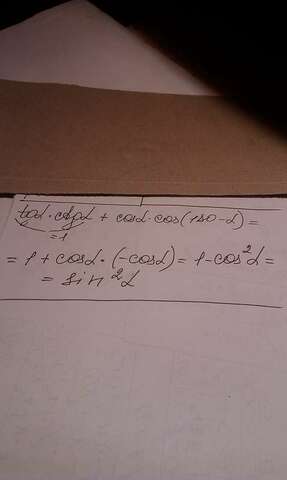 tgα · ctgα + cosα · cos(180-α) =
=1
= 1 + cosα · (-cosα) = 1 - cos²α =
= sin²α